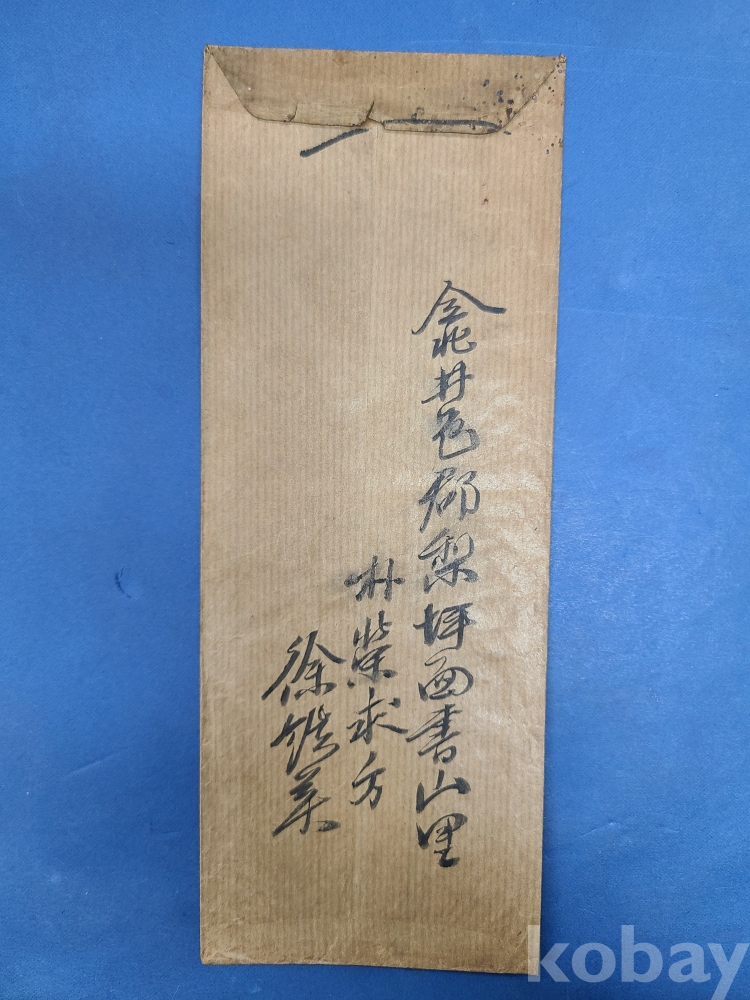 全北井邑郡梨坪面書山里
朴榮求方
徐鎂業
kobay